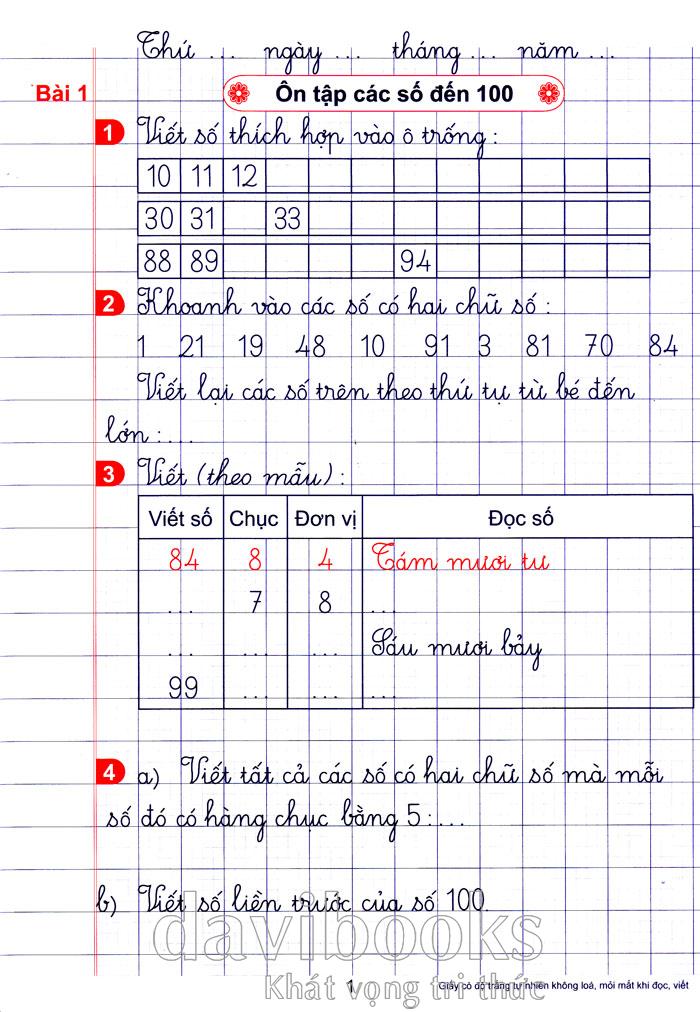 Thứ ... ngày ... tháng ... năm ...
Bài 1 Ôn tập các số đến 100
1 Viết số thích hợp vào ô trống :
10 11 12
30 31 33
88 89 94
2 Khoanh vào các số có hai chữ số :
1 21 19 48 10 91 3 81 70 84
Viết lại các số trên theo thứ tự từ bé đến
lớn : ...
3 Viết (theo mẫu) :
Viết số Chục Đơn vị Đọc số
84 8 4 Tám mươi tư
... 7 8 ...
... ... ... Sáu mươi bảy
99 ... ... ...
4 a) Viết tất cả các số có hai chữ số mà mỗi
số đó có hàng chục bằng 5 : ...
b) Viết số liền trước của số 100.
davibooks
Khát vọng tri thức
1 Giấy có độ trắng tự nhiên không loá, mỏi mắt khi đọc, viết